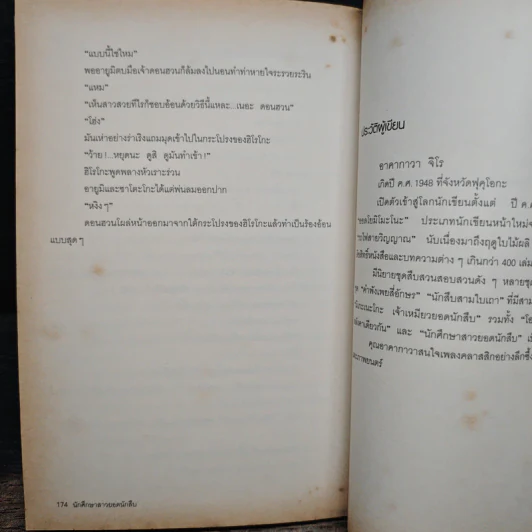 “แบบนี้ใช่ไหม”
พออายูมิตบมือเจ้าดอนฮวนก็ล้มลงไปนอนทำท่าหายใจระรวยระริน
“แหม”
“เห็นสาวสวยทีไรก็ชอบอ้อนด้วยวิธีนี้แหละ...เนอะ ดอนฮวน”
“โฮ่ง”
มันเห่าอย่างร่าเริงแถมมุดเข้าไปในกระโปรงของฮิโรโกะ
“ว้าย !...หยุดนะ ดูสิ ดูมันทำเข้า !”
ฮิโรโกะพูดพลางหัวเราะร่วน
อายูมิและซาโตะโกะได้แต่พ่นลมออกปาก
“หงิง ๆ”
ดอนฮวนโผล่หน้าออกมาจากใต้กระโปรงของฮิโรโกะแล้วทำเป็นร้องอ้อน
แบบสุด ๆ
174 นักศึกษาสาวยอดนักสืบ
ประวัติผู้เขียน
อาคากาวา จิโร
เกิดปี ค.ศ. 1948 ที่จังหวัดฟุคุโอกะ
เปิดตัวเข้าสู่โลกนักเขียนตั้งแต่ ปี ค.ศ.
ประเภทนักเขียนหน้าใหม่
นับเนื่องมาถึงฤดูใบไม้ผลิ
หนังสือและบทความต่าง ๆ เกินกว่า 400 เล่ม
มีนิยายชุดสืบสวนสอบสวนดัง ๆ หลายชุด
“นักสืบสามใบเถา” ที่มีสาม
เจ้าเหมียวยอดนักสืบ” รวมทั้ง
และ “นักศึกษาสาวยอดนักสืบ”
คุณอาคากาวาสนใจเพลงคลาสสิกอย่างลึกซึ้ง